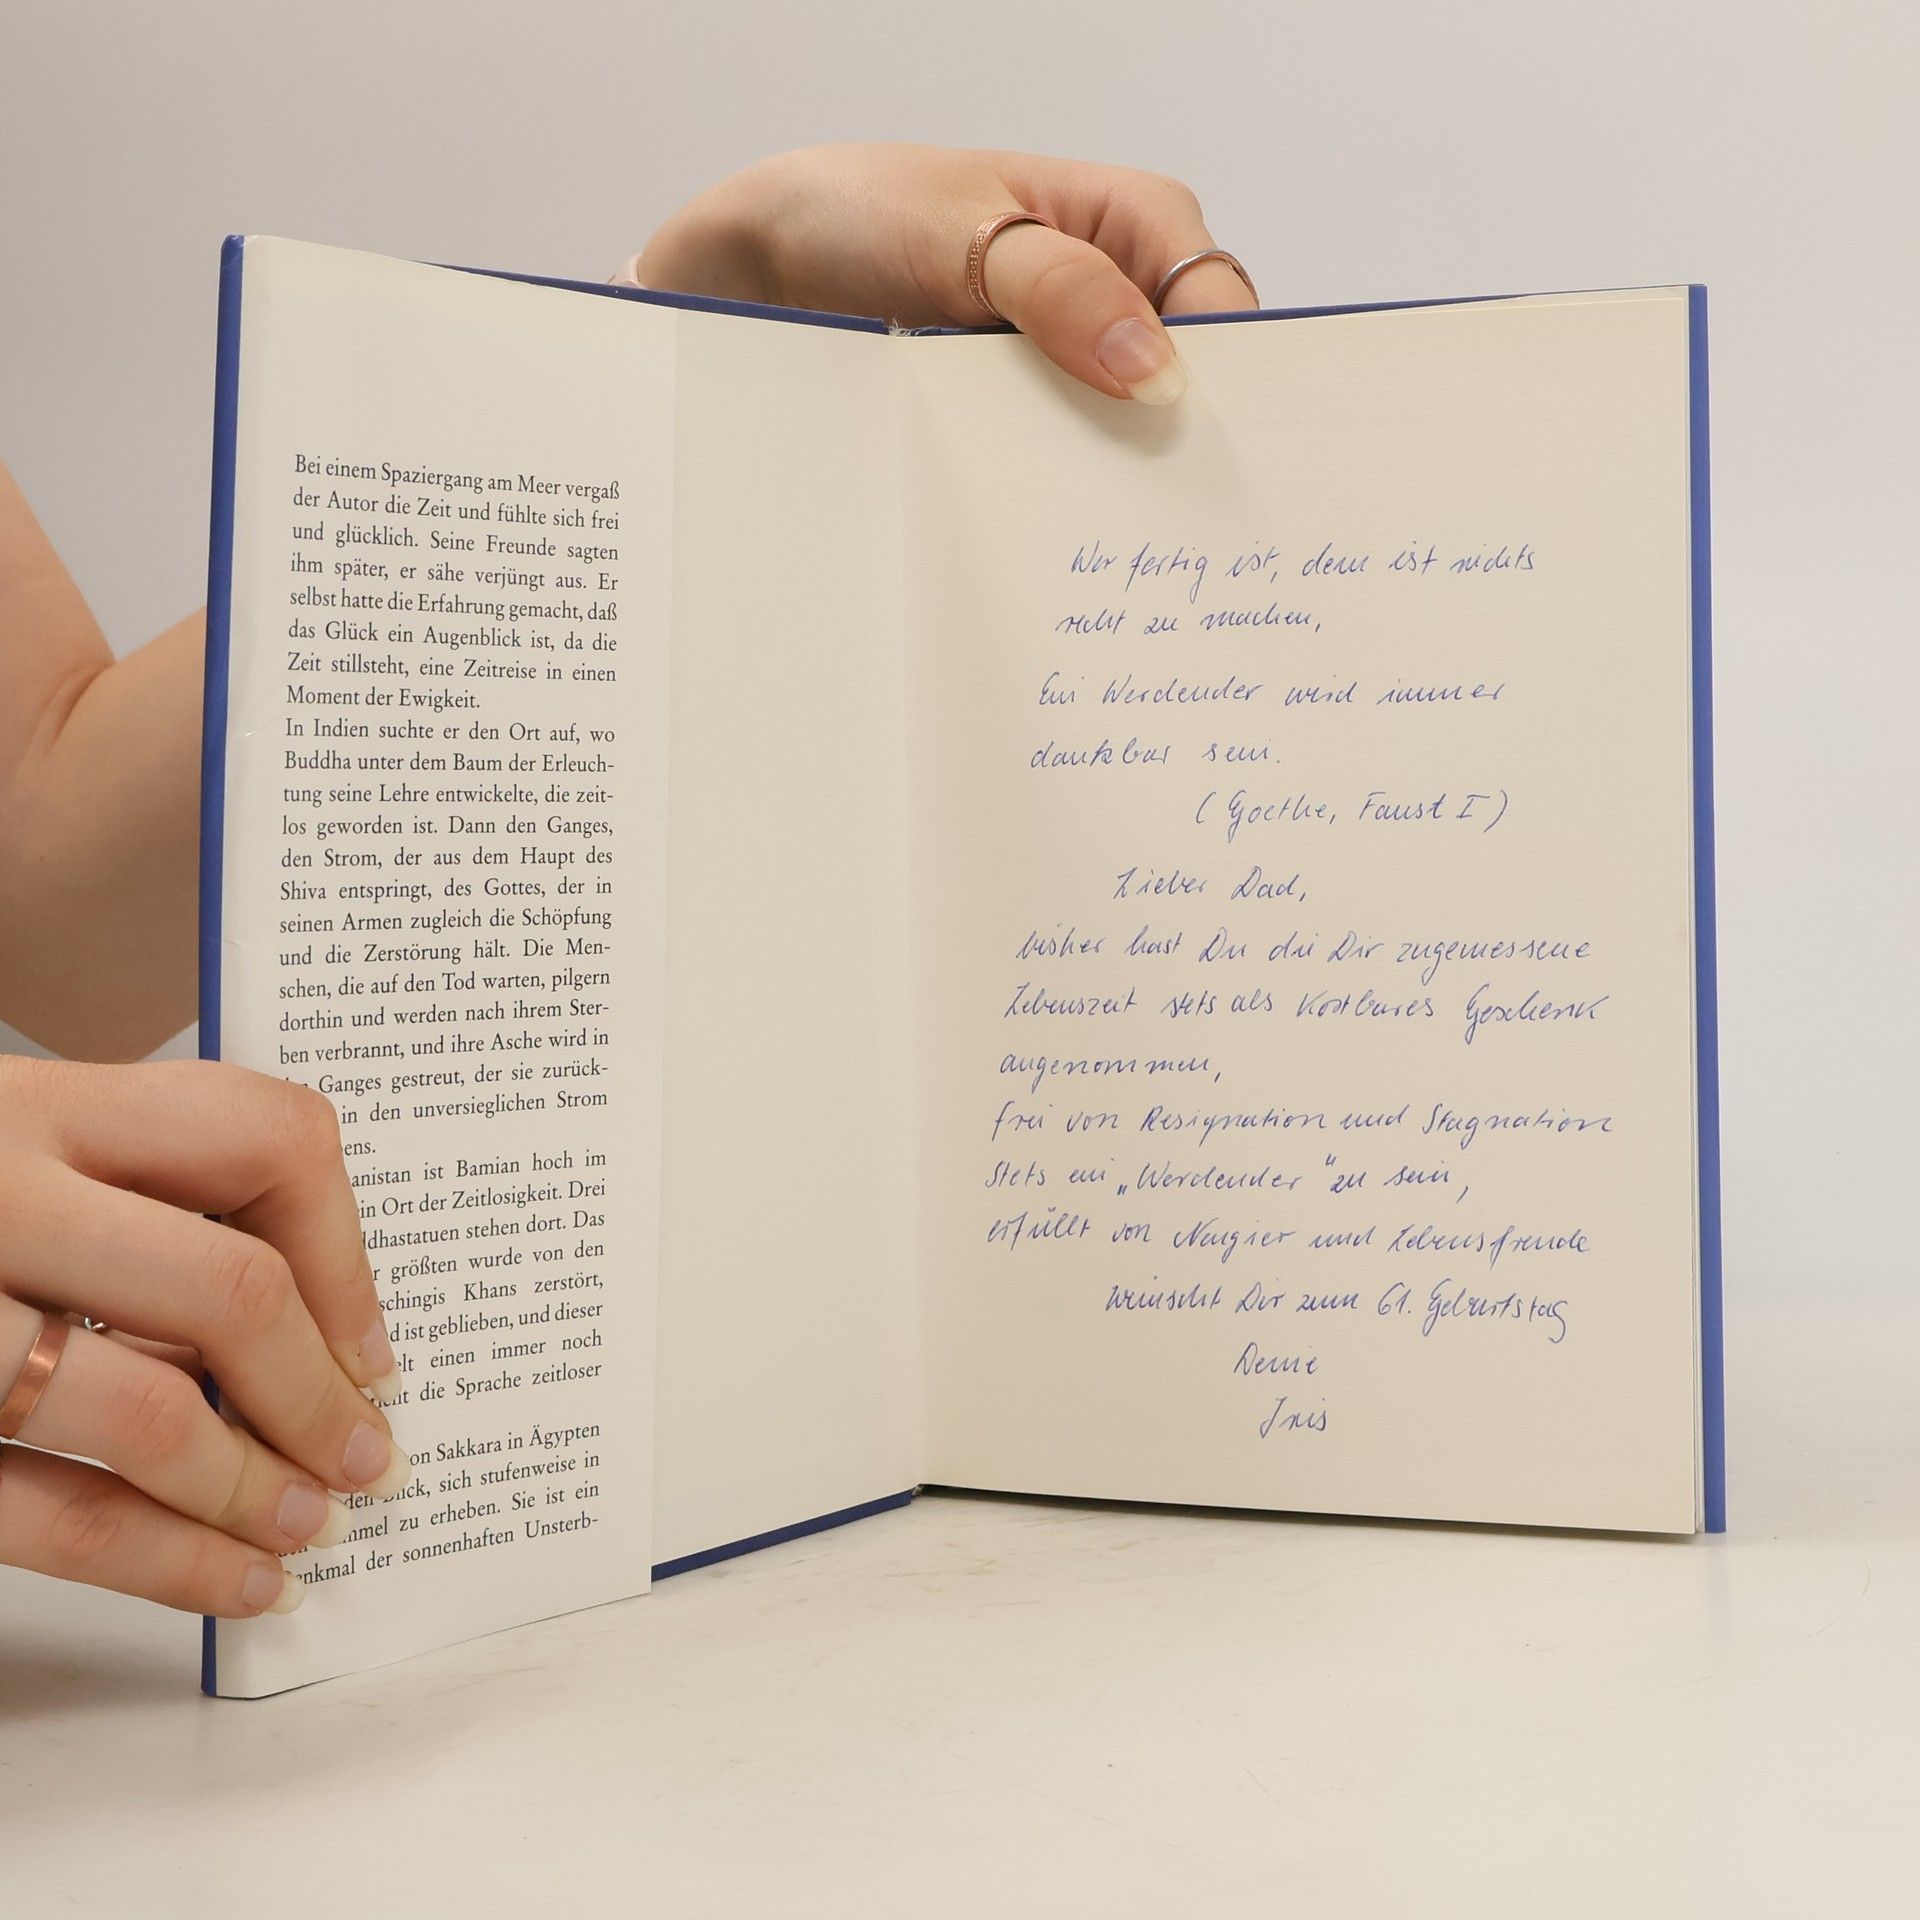 Bei einem Spaziergang am Meer vergaß
der Autor die Zeit und fühlte sich frei
und glücklich. Seine Freunde sagten
ihm später, er sähe verjüngt aus. Er
selbst hatte die Erfahrung gemacht, daß
das Glück ein Augenblick ist, da die
Zeit stillsteht, eine Zeitreise in einen
Moment der Ewigkeit.
In Indien suchte er den Ort auf, wo
Buddha unter dem Baum der Erleuch-
tung seine Lehre entwickelte, die zeit-
los geworden ist. Dann den Ganges,
den Strom, der aus dem Haupt des
Shiva entspringt, des Gottes, der in
seinen Armen zugleich die Schöpfung
und die Zerstörung hält. Die Men-
schen, die auf den Tod warten, pilgern
dorthin und werden nach ihrem Ster-
ben verbrannt, und ihre Asche wird in
Ganges gestreut, der sie zurück-
in den unversieglichen Strom
ens.
anistan ist Bamian hoch im
ein Ort der Zeitlosigkeit. Drei
ddhastatuen stehen dort. Das
r größten wurde von den
schingis Khans zerstört,
d ist geblieben, und dieser
elt einen immer noch
die Sprache zeitloser
on Sakkara in Ägypten
den Blick, sich stufenweise in
mmel zu erheben. Sie ist ein
enkmal der sonnenhaften Unsterb-
Wer fertig ist, dem ist nichts
recht zu machen,
Ein Werdender wird immer
dankbar sein.
(Goethe, Faust I)
Lieber Dad,
bisher hast Du die Dir zugemessene
Lebenszeit stets als kostbares Geschenk
angenommen,
frei von Resignation und Stagnation
Stets ein „Werdender" zu sein,
erfüllt von Neugier und Lebensfreude
wünscht Dir zum 61. Geburtstag
Deine
Iris